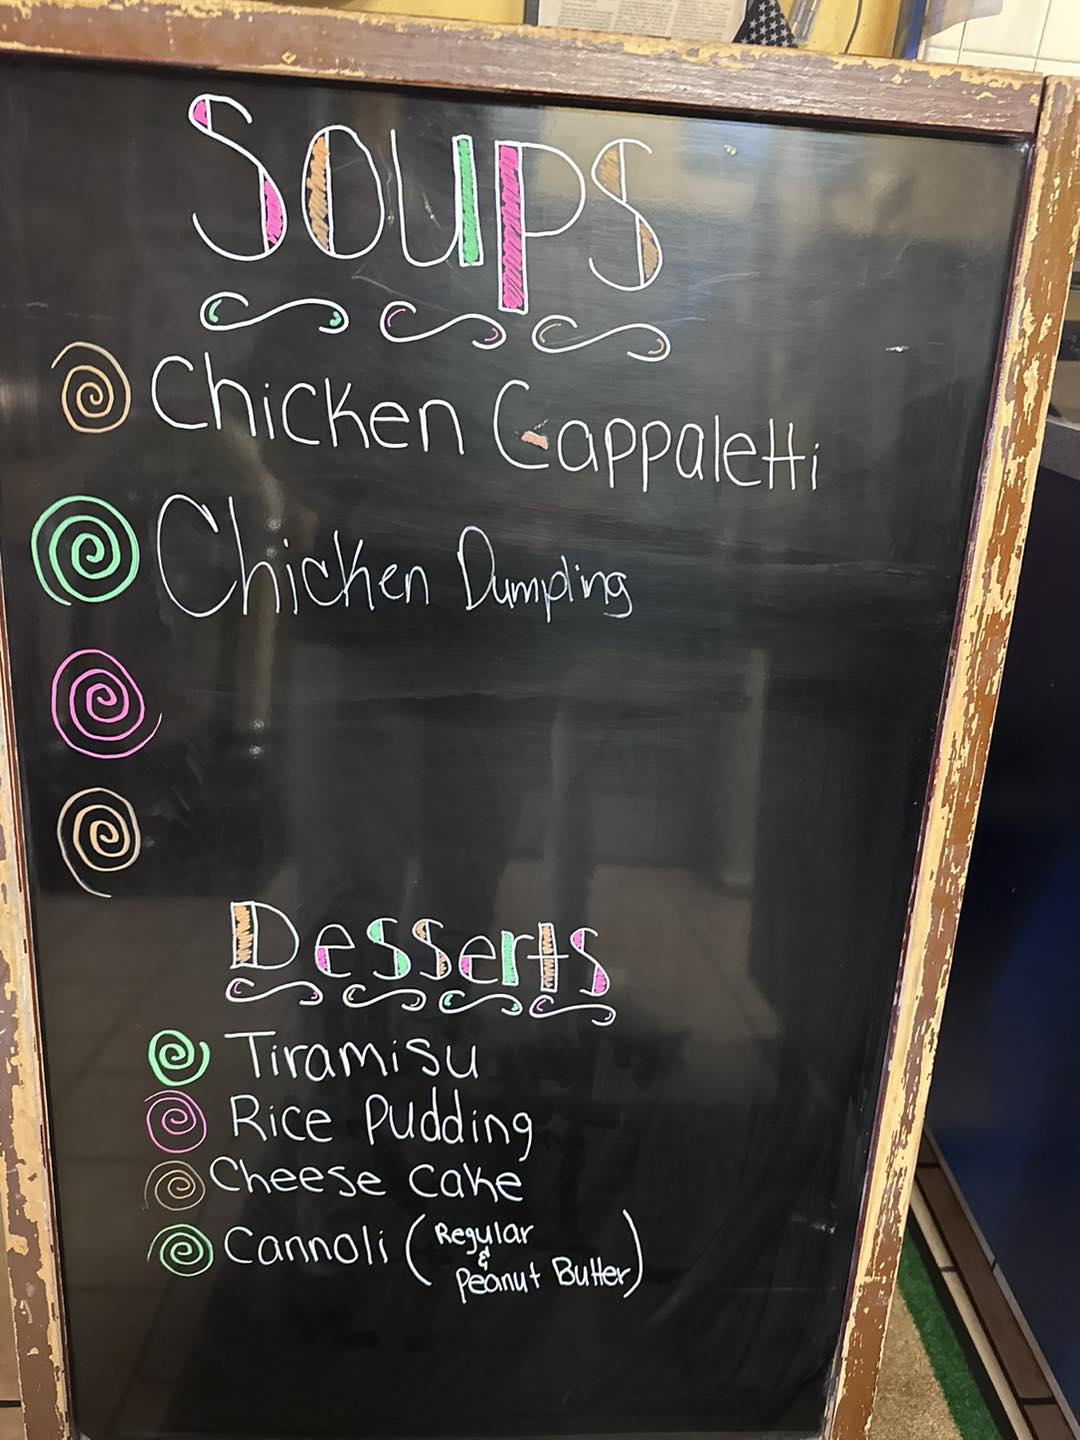 Soups
Chicken Cappaletti
Chicken Dumpling
Desserts
Tiramisu
Rice Pudding
Cheese cake
Cannoli (Regular
&
Peanut Butter)